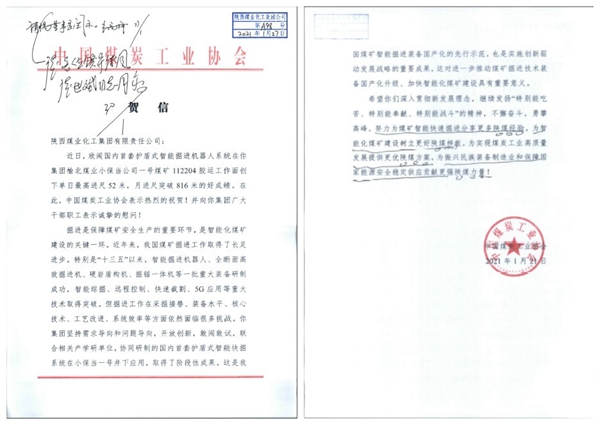 陕西煤业化工集团公司
第A98号
2021年1月27日
中国煤炭工业协会
贺信
陕西煤业化工集团有限责任公司:
近日,欣闻国内首套护盾式智能掘进机器人系统在你
集团榆北煤业小保当公司一号煤矿112204胶运工作面创
下单日最高进尺52米,月进尺突破816米的好成绩。在
此,中国煤炭工业协会表示热烈的祝贺!并向你集团广大
干部职工表示诚挚的慰问!
掘进是保障煤矿安全生产的重要环节,是智能化煤矿
建设的关键一环。近年来,我国煤矿掘进工作取得了长足
进步。特别是“十三五”以来,智能掘进机器人、全断面高
效掘进机、硬岩盾构机、掘锚一体机等一批重大装备研制
成功,智能综掘、远程控制、快速截割、5G应用等重大
技术取得突破。但掘进工作在采掘接替、装备水平、核心
技术、工艺改进、系统效率等方面依然面临很多挑战。你
集团坚持需求导向和问题导向,开放创新,敢闯敢试,联
合相关产学研单位,协同研制的国内首套护盾式智能快掘
系统在小保当一号井下应用,取得了阶段性成果。这是我
国煤矿智能掘进装备国产化的先行示范,也是实施创新驱
动发展战略的重要成果,这对进一步推动煤矿掘进技术装
备国产化升级、加快智能化煤矿建设具有重要意义。
希望你们深入贯彻新发展理念,继续发扬“特别能吃
苦、特别能奉献、特别能战斗”的精神,不懈奋斗,勇攀
高峰,努力为煤矿智能快速掘进分享更多陕煤经验,为智
能化煤矿建设树立更好陕煤样板,为实现煤炭工业高质量
发展提供更优陕煤方案,为振兴民族装备制造业和保障国
家能源安全稳定供应贡献更强陕煤力量!
中国煤炭工业协会
2021年1月21日